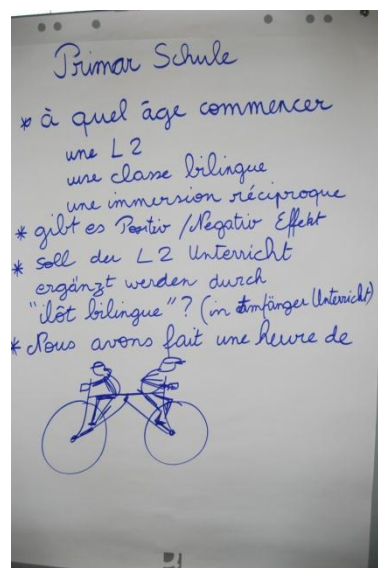 Primar Schule
* à quel âge commencer
une L2
une classe bilingue
une immersion réciproque
* gibt es Positiv / Negativ Effekt
* soll der L2 Unterricht
ergänzt werden durch
"ilôt bilingue"? (in Anfänger Unterricht)
* Nous avons fait une heure de